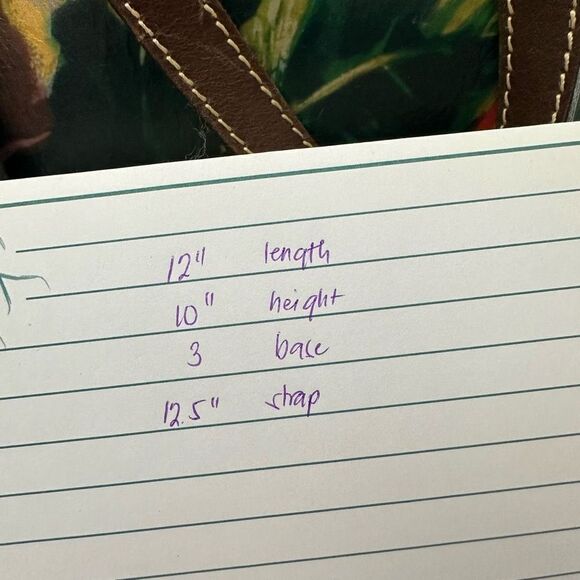 12" length
10" height
3 base
12.5" strap